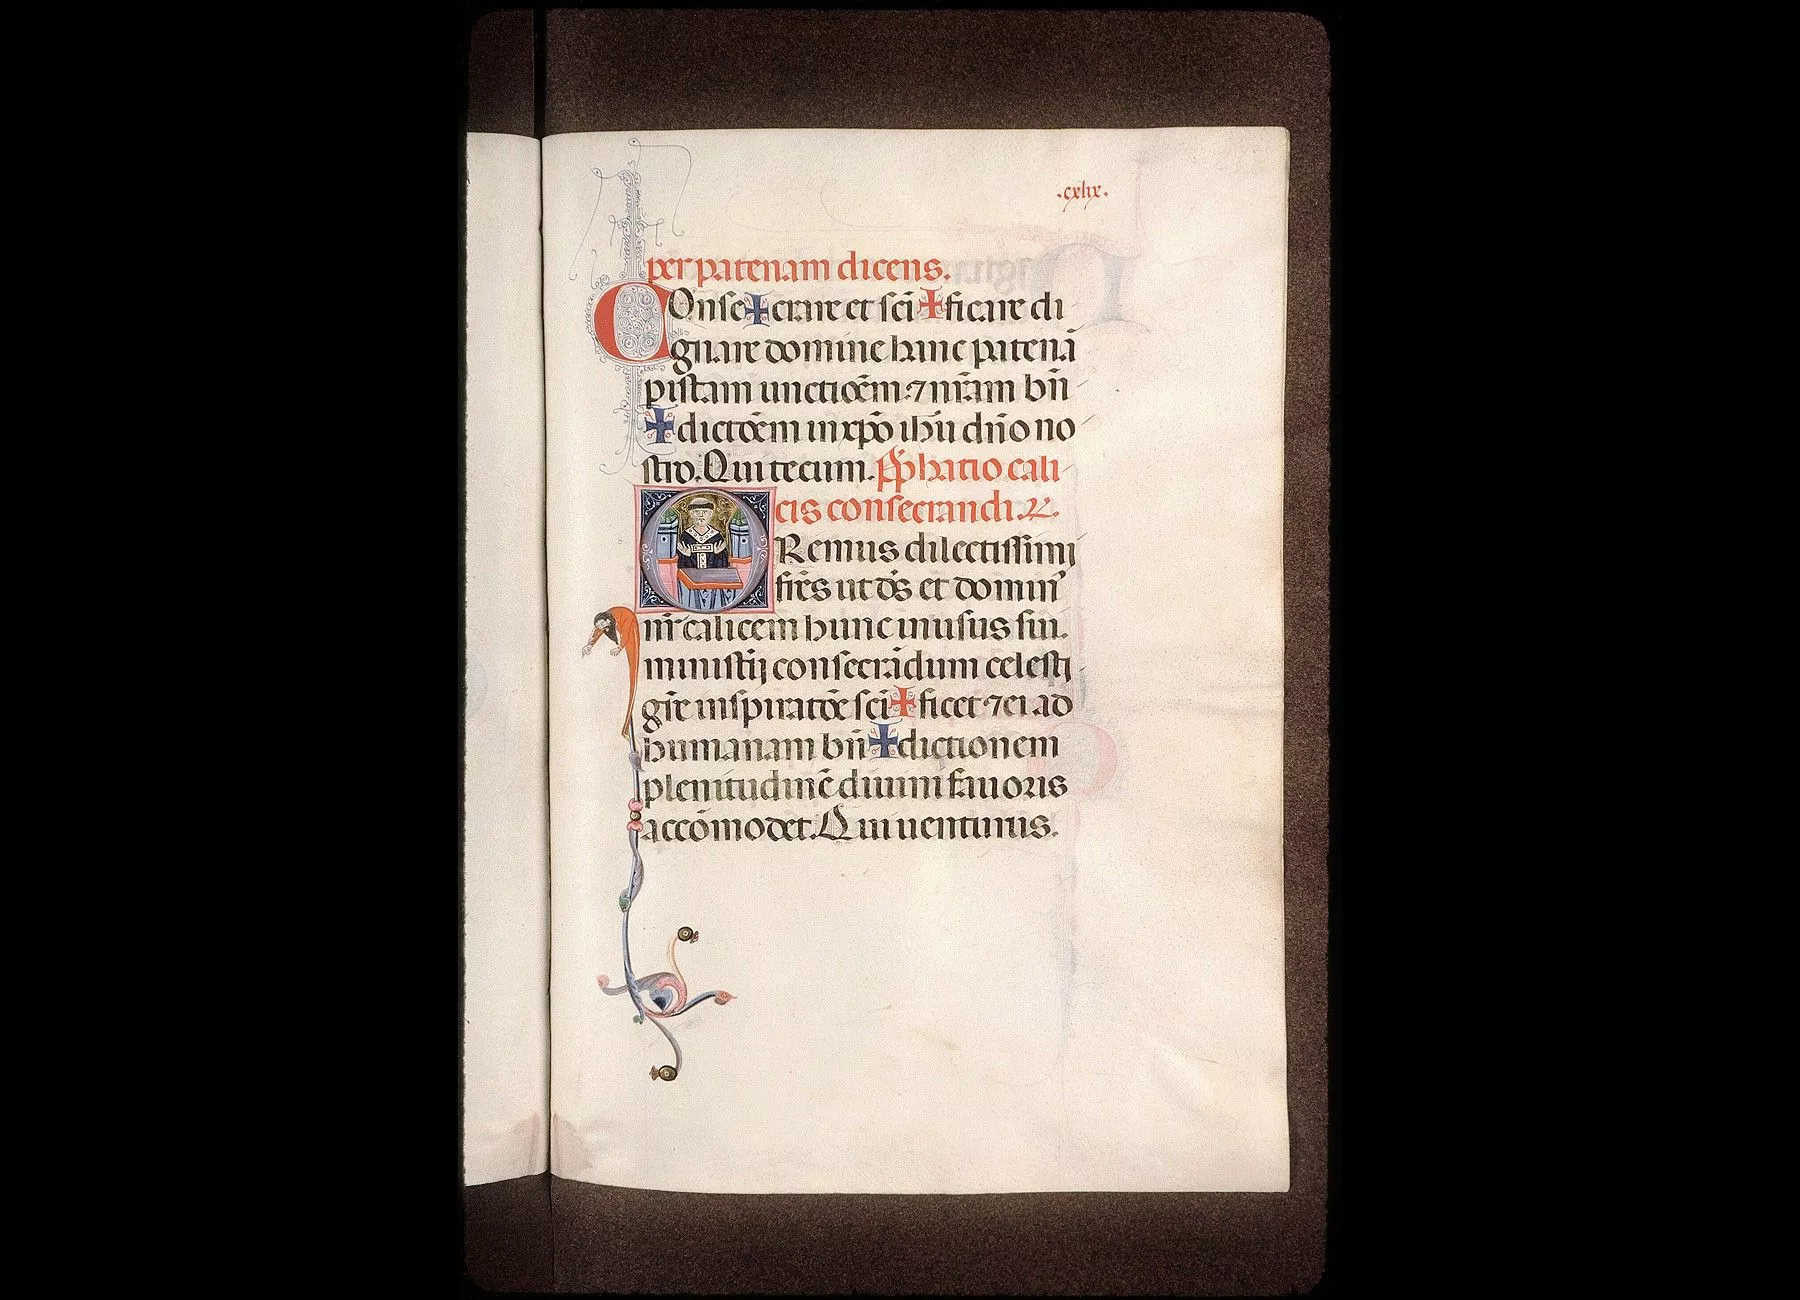 .cxlix.
per patenam dicens.
COnse✠crare et sc̄i ✠ficare di
gnare domine hanc patenā
p istam unctiōēm ⁊ nr̄am bn̄
✠dictōēm in xp̄o ih̄u dn̄o no
stro. Qui tecum. P̄phatio cali
cis consecrandi.
ORemus dilectissimj
fr̄es ut ds̄ et domin̄
nr̄ calicem hunc in usus sui.
ministīj consecrādum celestj
gr̄e inspiratōe sc̄i✠ficet ⁊ ei ad
humanam bn̄✠dictionem
plenitudinē diuini fauoris
accōmodet. Qui uenturus.